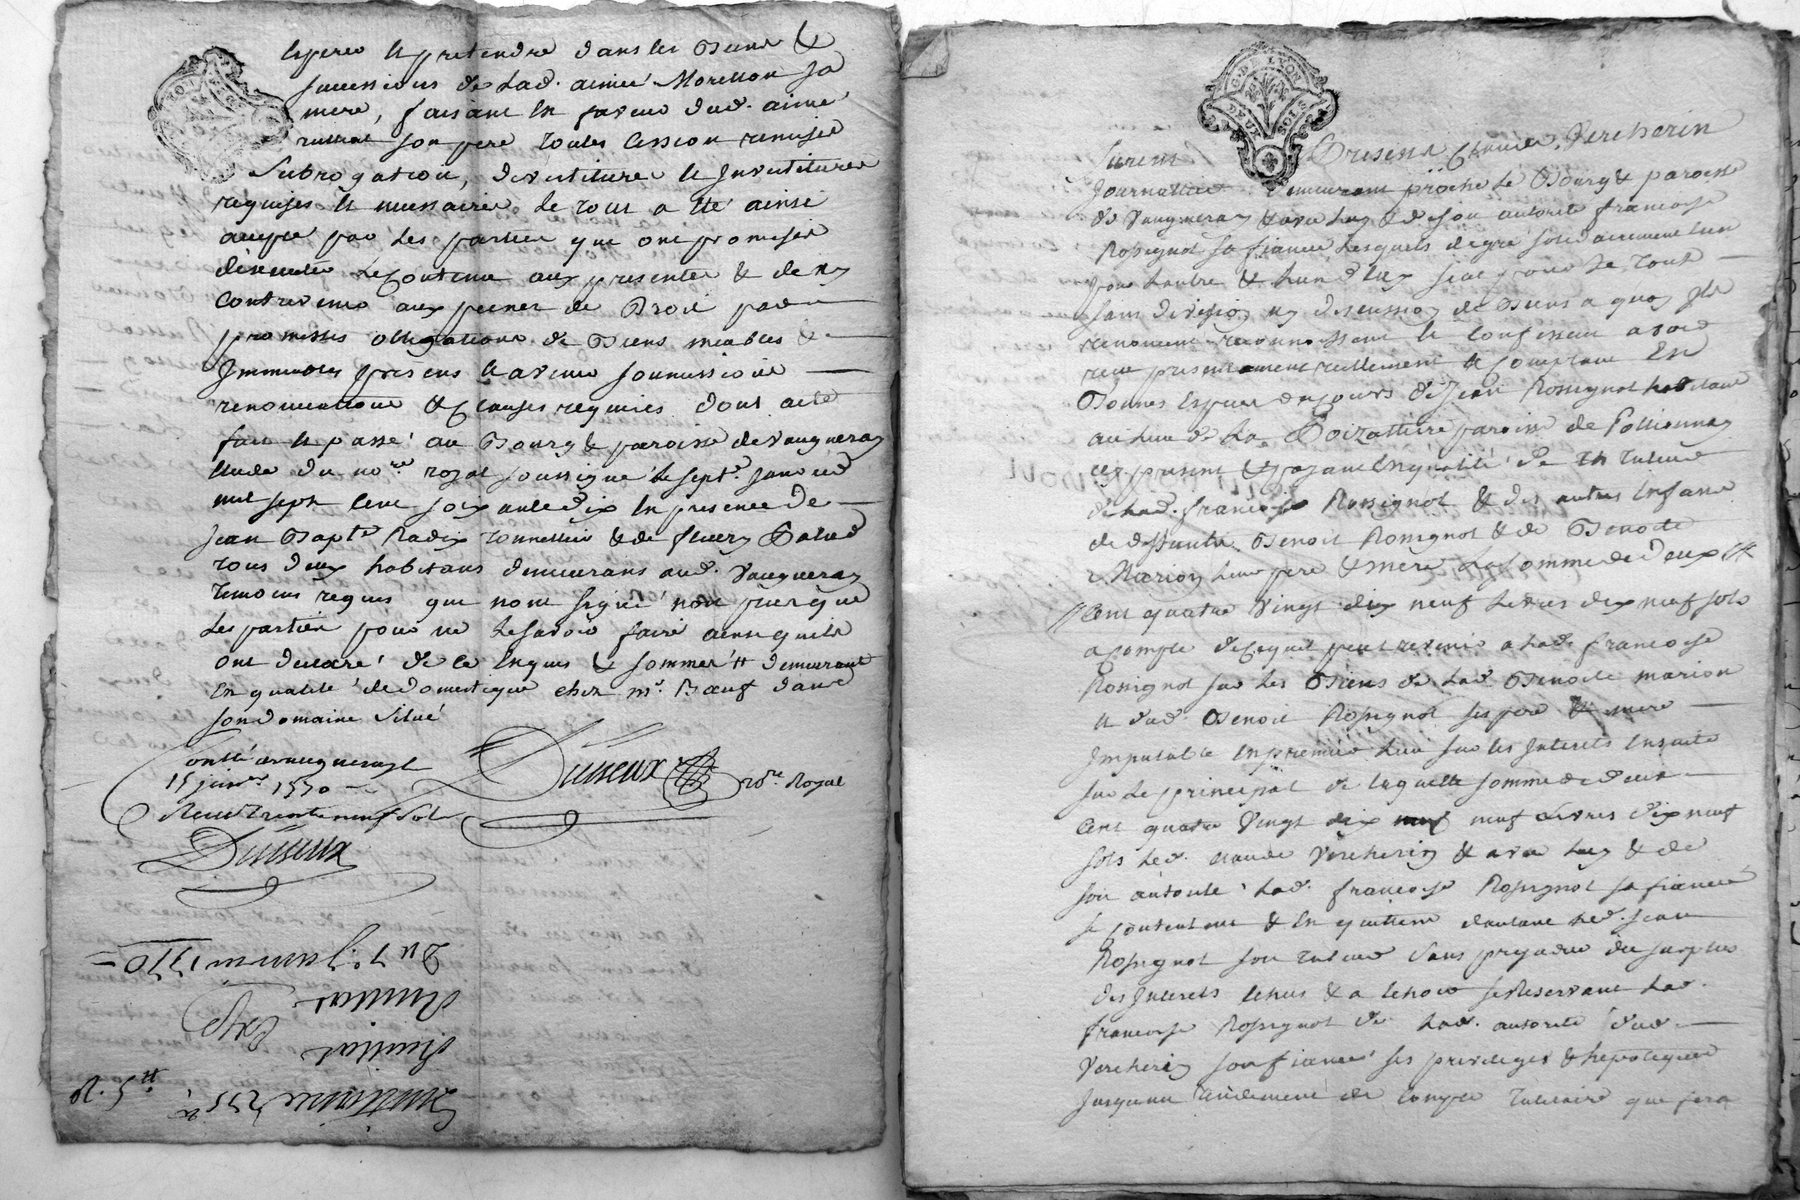 esperer et pretendre dans les Biens &
successions de lad. aimée Morellon sa
mere, faisant en faveur dud. aimé
son pere toutes Cession remises
Subrogation, devestitures et Investitures
requises et necessaires Le tout a été ainsi
accepté par les parties qui ont promis
d'executer Le Contenu aux presentes & de ny
Contrevenir aux peines de Droit par
promesses obligations de Biens meubles &
Immeubles presens et avenir soumissions
renonciations & Clauses requises dont acte
fait et passé au Bourg & paroisse de vaugneray
etude du no.re royal soussigné Le sept.e Janvier
mil sept Cent soixante dix En presence de
Jean Bapt.e Radix tonnellier & de fleury
tous deux habitans demeurans aud. Vaugneray
temoins requis qui n'ont signé non plus que
Les parties pour ne Le savoir faire ainsi quils
ont declaré de ce Enquis & sommés demeurant
En qualité de domestique chez mr. Bœuf dans
son domaine situé
Contllé a vaugneray le
15 janv.er 1770
Recu trente neuf sols
Duisseux
Duisseux no.re Royal
Du 7.e Janvier 1770
Ruillat
Exp
Ruillat
Quittance 275
G. DE LYON
DEUX SOLS
Furent Presens Claude Vercherin
Journallier Demeurant proche Le Bourg & paroisse
de Vaugneray & avec luy & de son autorité francoise
Rossignol sa fiancée, Lesquels de gré solidairement l'un
pour Lautre & Lun d'Eux seul pour Le tout
sans division ny discussion de Biens a quoy Ils
renoncent reconnoissent et Confessent avoir
recu presentement reellement & Comptant En
Bonnes Especes du cours de Jean Rossignol habitant
au lieu de La Poizattiere paroisse de Pollionnay
icy present & payant En qualité de tuteur
de lad. francoise Rossignol & des autres Enfans
de deffunts Benoit Rossignol & de Benoite
Marion leur pere & mere La Somme de deux
Cent quatre Vingt dix neuf Livres dix neuf sols
a compte de Ce qui peut revenir a lad. francoise
Rossignol sur Les Biens de lad. Benoite marion
et dud. Benoit Rossignol ses pere & mere
Imputable En premier Lieu sur les Interets Ensuite
sur Le principal de laquelle somme de deux
Cent quatre Vingt dix neuf Livres dix neuf
sols Led. Claude Vercherin & avec luy & de
son autorité lad. francoise Rossignol sa fiancée
se contentent & En quittent d'autant Led. Jean
Rossignol son tuteur Sans prejudice du surplus
des Interets Echus & a Echoir se Reservant Lad.
francoise Rossignol de Lad. autorité dud.
Vercherin son fiancé ses privileges & hipoteques
Jusquau de Compte tutelaire que sera